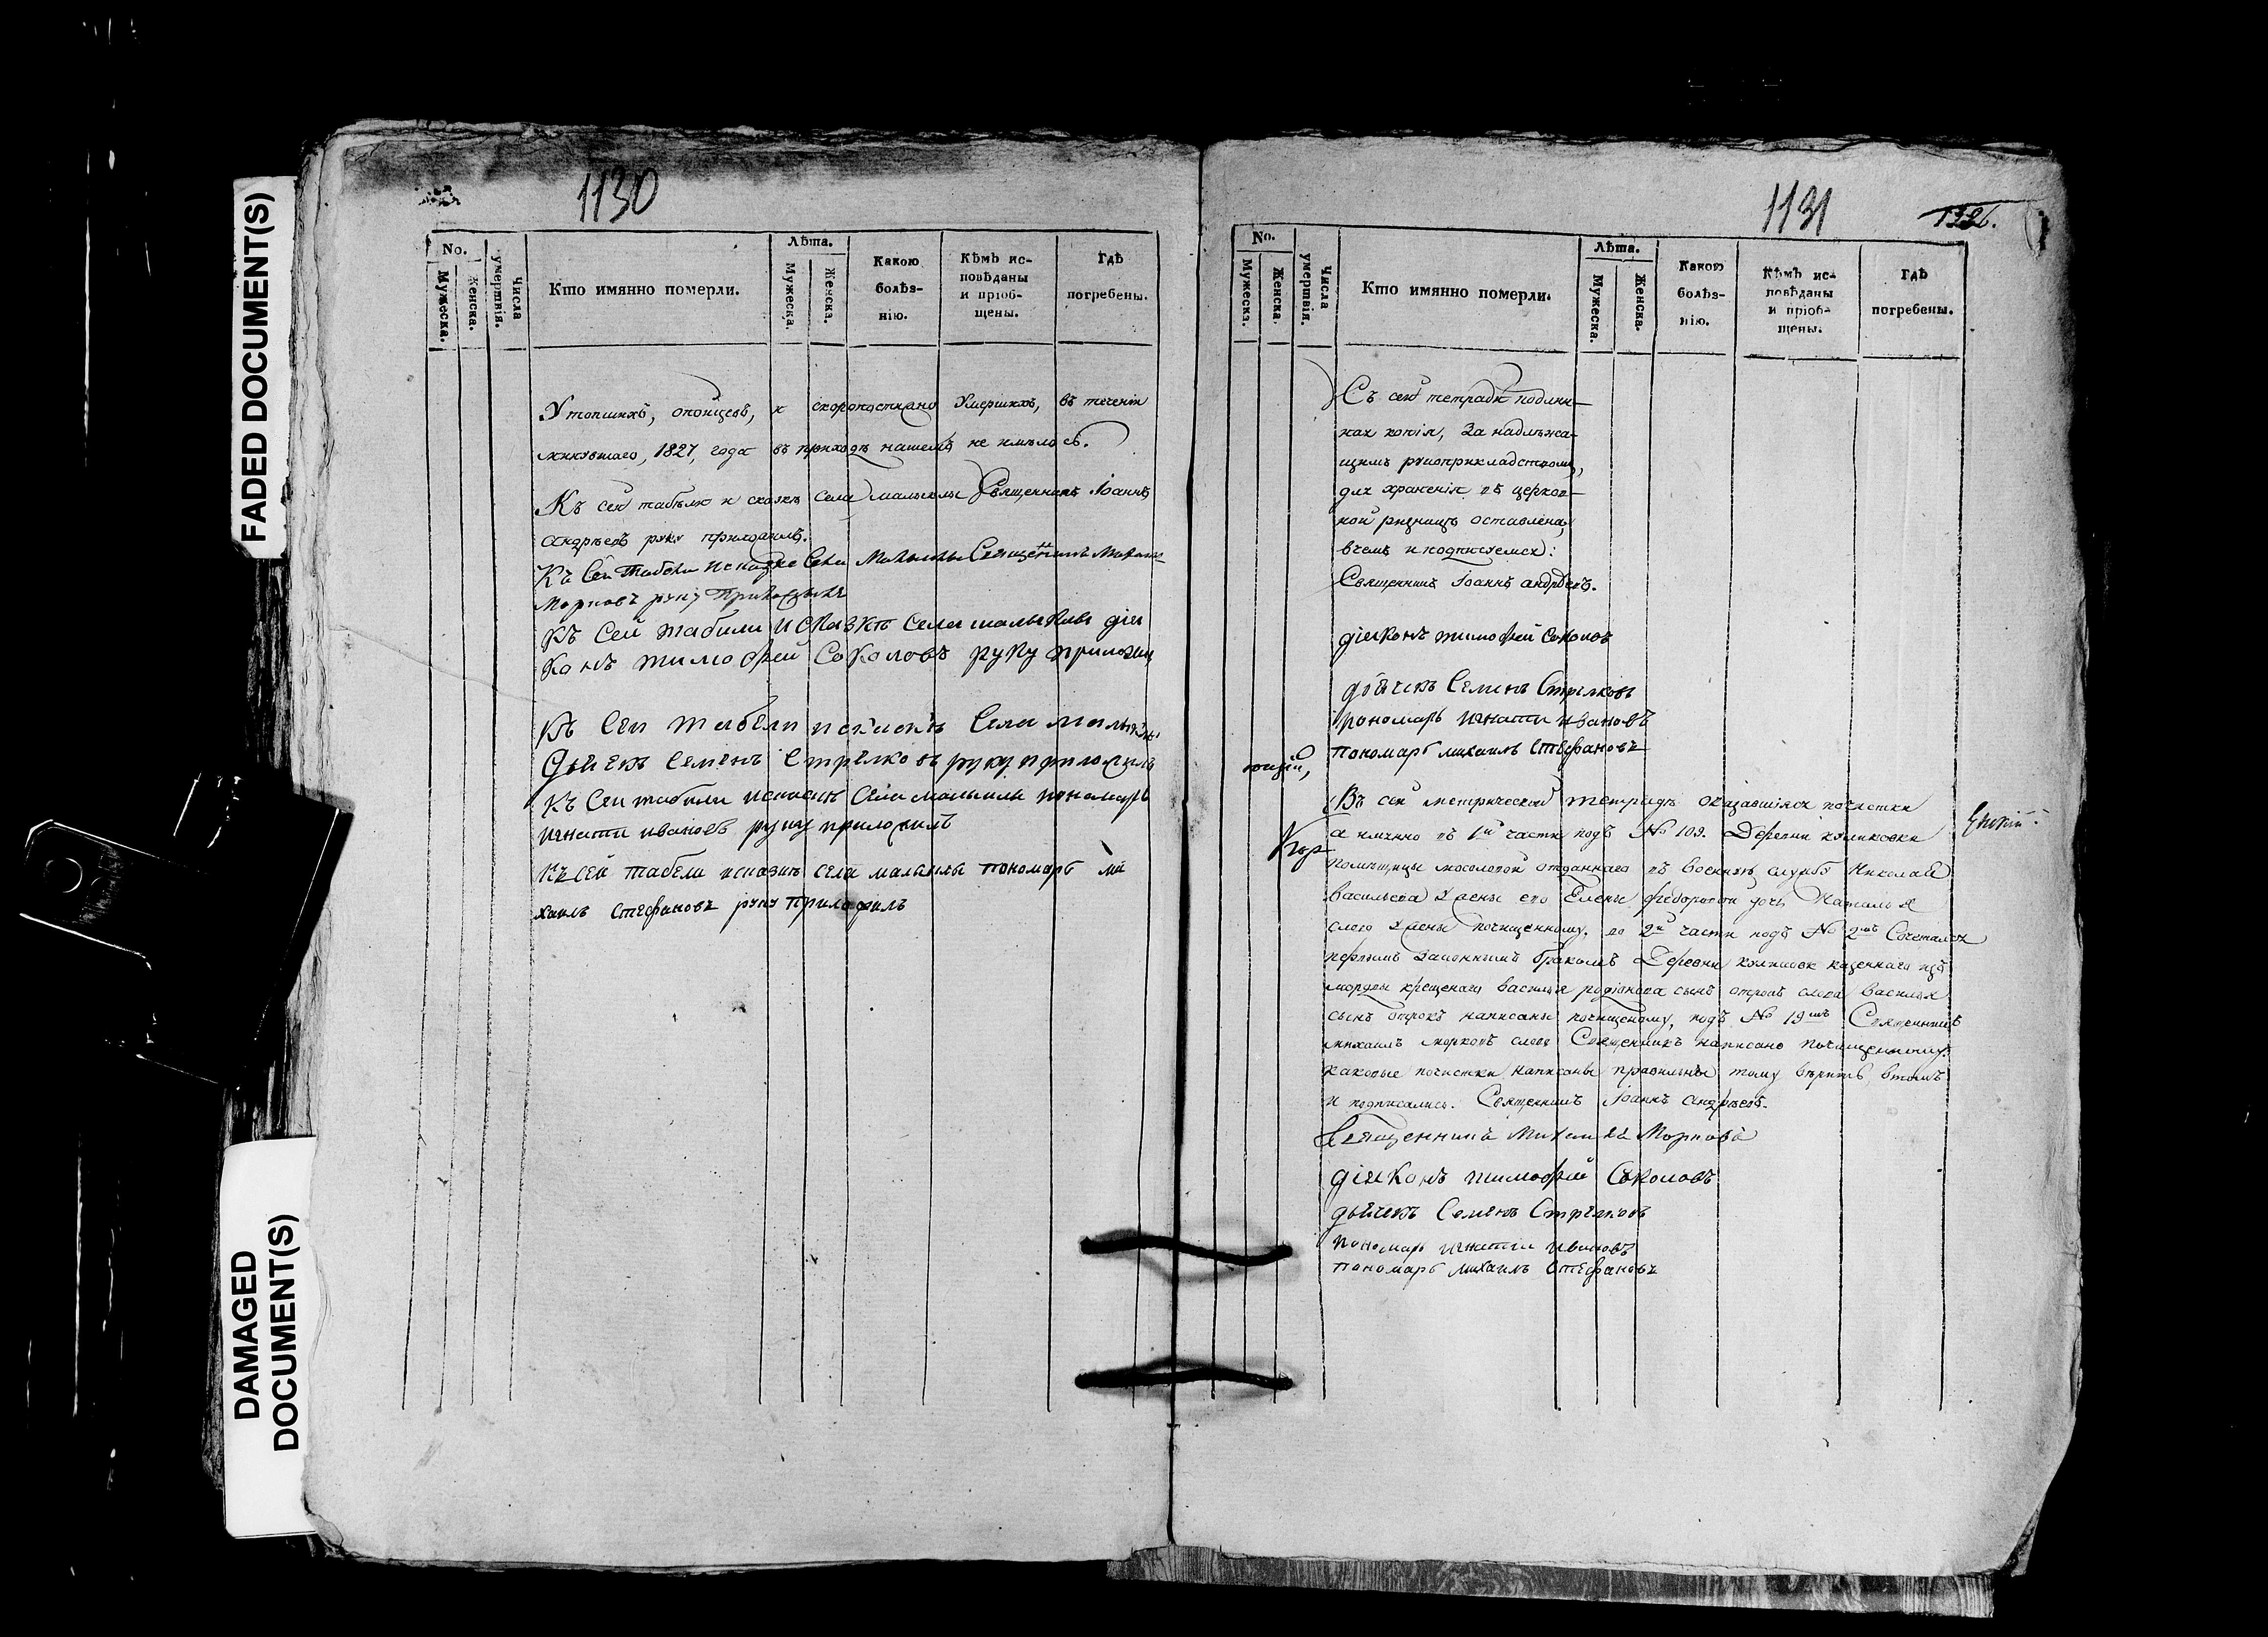 FADED DOCUMENT(S)
DAMAGED
DOCUMENT(S)
1130
No.
Мужеска.
Женска.
Числа
умертвія.
Кто имянно померли.
Лѣта.
Мужеска.
Женска.
Какою
болѣз-
нію.
Кѣмъ ис-
повѣданы
и пріоб-
щены.
Гдѣ
погребены.
Утопшихъ, опойцевъ, и скоропостижно Умершихъ, въ теченіи
минувшаго, 1827, года въ приходѣ нашемъ не имѣлось.
Къ сей табѣли и сказкѣ села малыклы Священникъ Іоаннъ
андрѣевъ руку приложилъ.
Къ Сей Табели и сказке Села Малыклы Священникъ
Морковъ руку приложилъ
Къ Сей табили И СКазКѣ села малыКлы діа
Конъ тимофей СоКоловъ руКу приложил
Къ Сеи табели Села
дьячекъ Семенъ Стрелковъ руку приложилъ
Къ Сеи табили Села малыклы пономарь
игнатии ивановъ руку приложилъ
Къ сей табели исказкѣ села малыклы пономарь ми
хаилъ Стефановъ руку приложилъ
1131
1226.
No.
Мужеска.
Женска.
Числа
умертвія.
Кто имянно померли.
Лѣта.
Мужеска.
Женска.
Какою
болѣз-
нію.
Кѣмъ ис-
повѣданы
и пріоб-
щены.
Гдѣ
погребены.
Съ сей тетради подлин-
ная копія, За надлежа-
щимъ рукоприкладствомъ,
для храненія въ церков-
ной ризницѣ оставлена,
вчемъ и подписуемся:
Священникъ Іоаннъ андрѣевъ.
діаКонъ тимофей Соколовъ
дьячекъ Семенъ Стрелковъ
пономарь игнати ивановъ
пономарь михаилъ Стефановъ
Въ сей метрической тетради оказавшіяся почистки
а имянно въ 1й части подъ № 109. Деревни куликовки
помѣщицы отданнаго въ военную службу Николая
васильева жены его Елены федоровой дочь Наталья
слово жены почищенному. во 2й части подъ № 2мъ Сочетался
первымъ Законнымъ бракомъ Деревни казеннаго изъ
мордвы крещенаго василья родіонова сынъ отрокъ слова василья
сынъ отрокъ написаны почищеному, подъ № 19мъ Священникъ
михаилъ морковъ слово Священникъ написано почищенному.
каковые почистки написаны правильны тому вѣрить втомъ
и подписались. Священникъ Іоаннъ андрѣевъ.
Священникъ Михаилъ Морковъ
діаКонъ тимофей СоКоловъ
дьячекъ Семенъ Стрелковъ
пономарь игнатии ивановъ
пономарь михаилъ Стефановъ